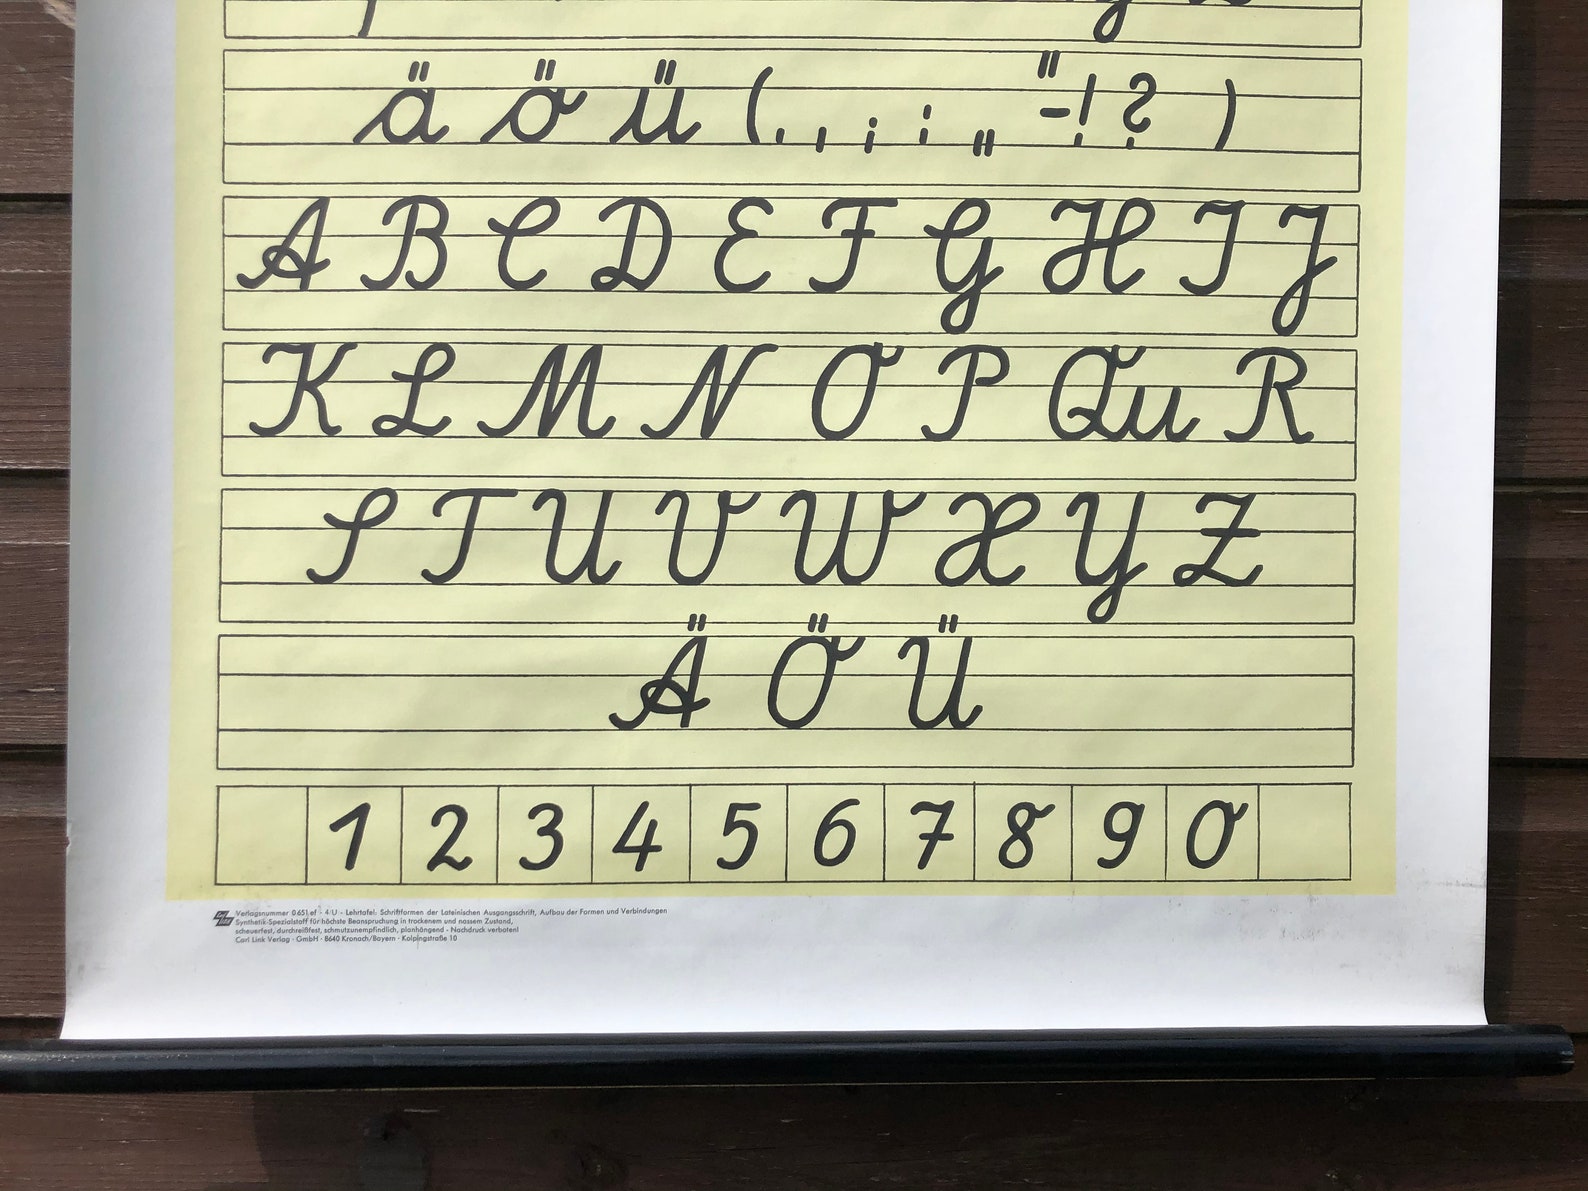 ä ö ü ( . , ; : „ " - ! ? )
A B C D E F G H I J
K L M N O P Qu R
S T U V W X Y Z
Ä Ö Ü
1 2 3 4 5 6 7 8 9 0
Verlagsnummer 0651.ef - 4/U - Lehrtafel: Schriftformen der Lateinischen Ausgangsschrift, Aufbau der Formen und Verbindungen
Synthetik-Spezialstoff für höchste Beanspruchung in trockenem und nassem Zustand,
scheuerfest, durchreißfest, schmutzunempfindlich, planhängend - Nachdruck verboten!
Carl Link Verlag · GmbH · 8640 Kronach/Bayern · Kolpingstraße 10